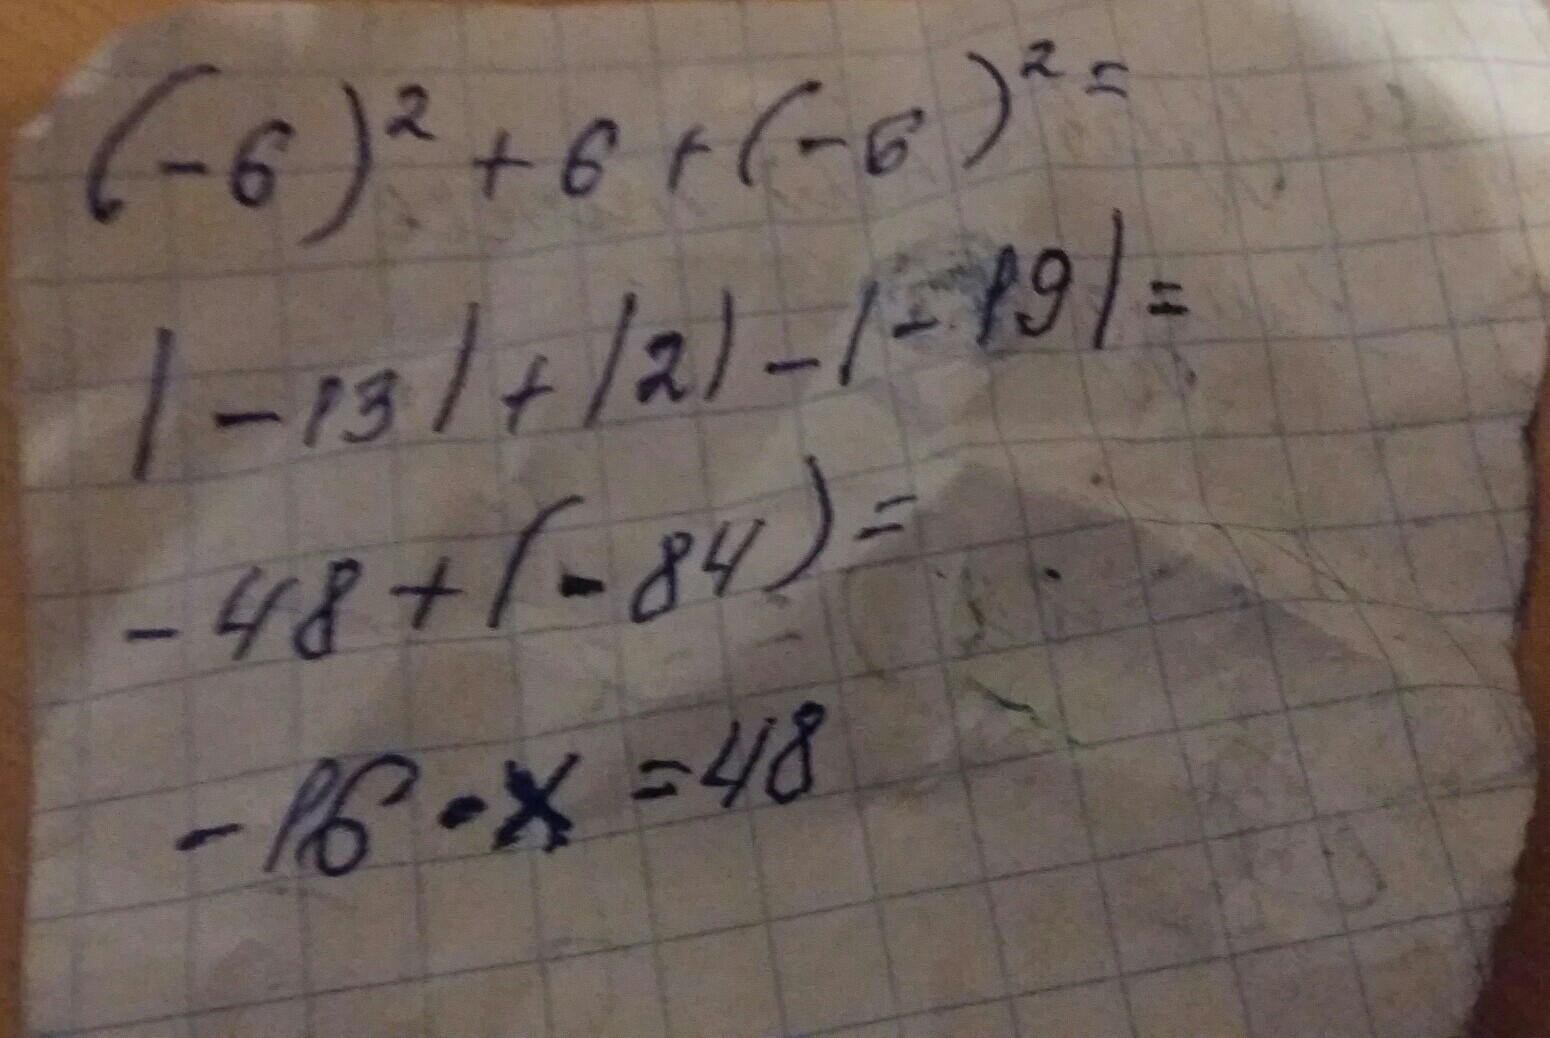 (-6)² + 6 + (-6)² =
|-13| + |2| - |-19| =
-48 + (-84) =
-16 · x = 48